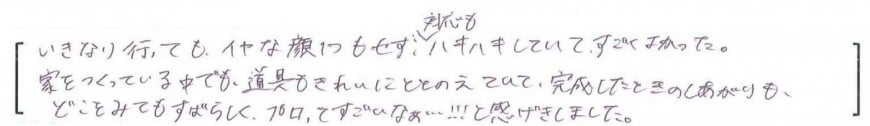 いきなり行っても、イヤな顔1つもせず、対応もハキハキしていて、すごくよかった。
家をつくっている中でも、道具もきれいにととのえていて、完成したときのしあがりも、
どこをみてもすばらしく、プロってすごいなぁ…!!!と感げきしました。